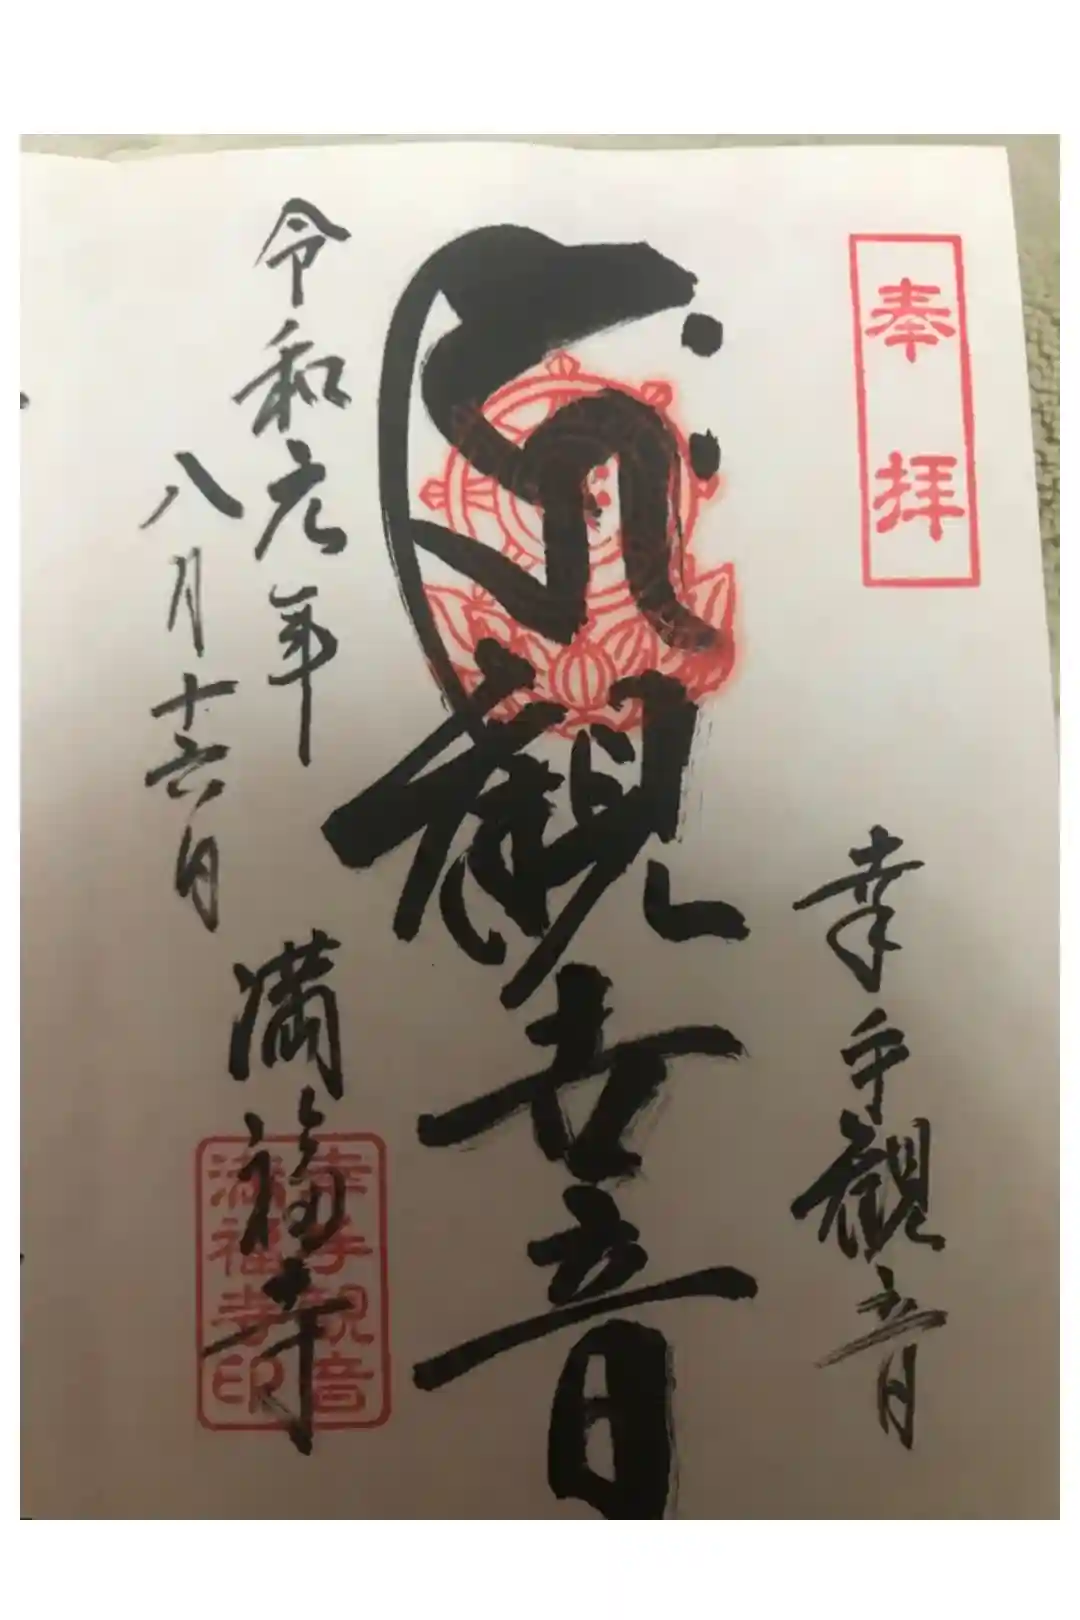 奉拝
幸手観音
観世音
令和元年
八月十六日
満福寺
幸手観音
満福寺印